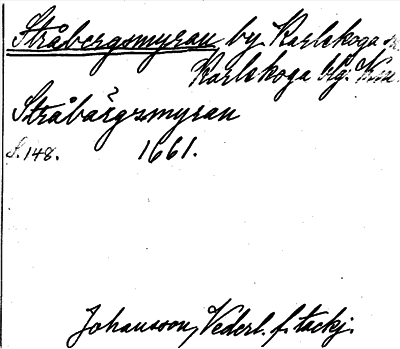 Stråbergsmyran by Karlskoga
Karlskoga bg. Vrm.
Stråbärgsmyran
S. 148. 1661.
Johansson, Vederl. f. tackj.